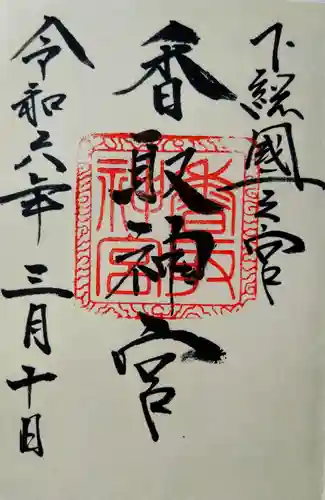 下總國一之宮
香取神宮
香取神宮
令和六年三月十日